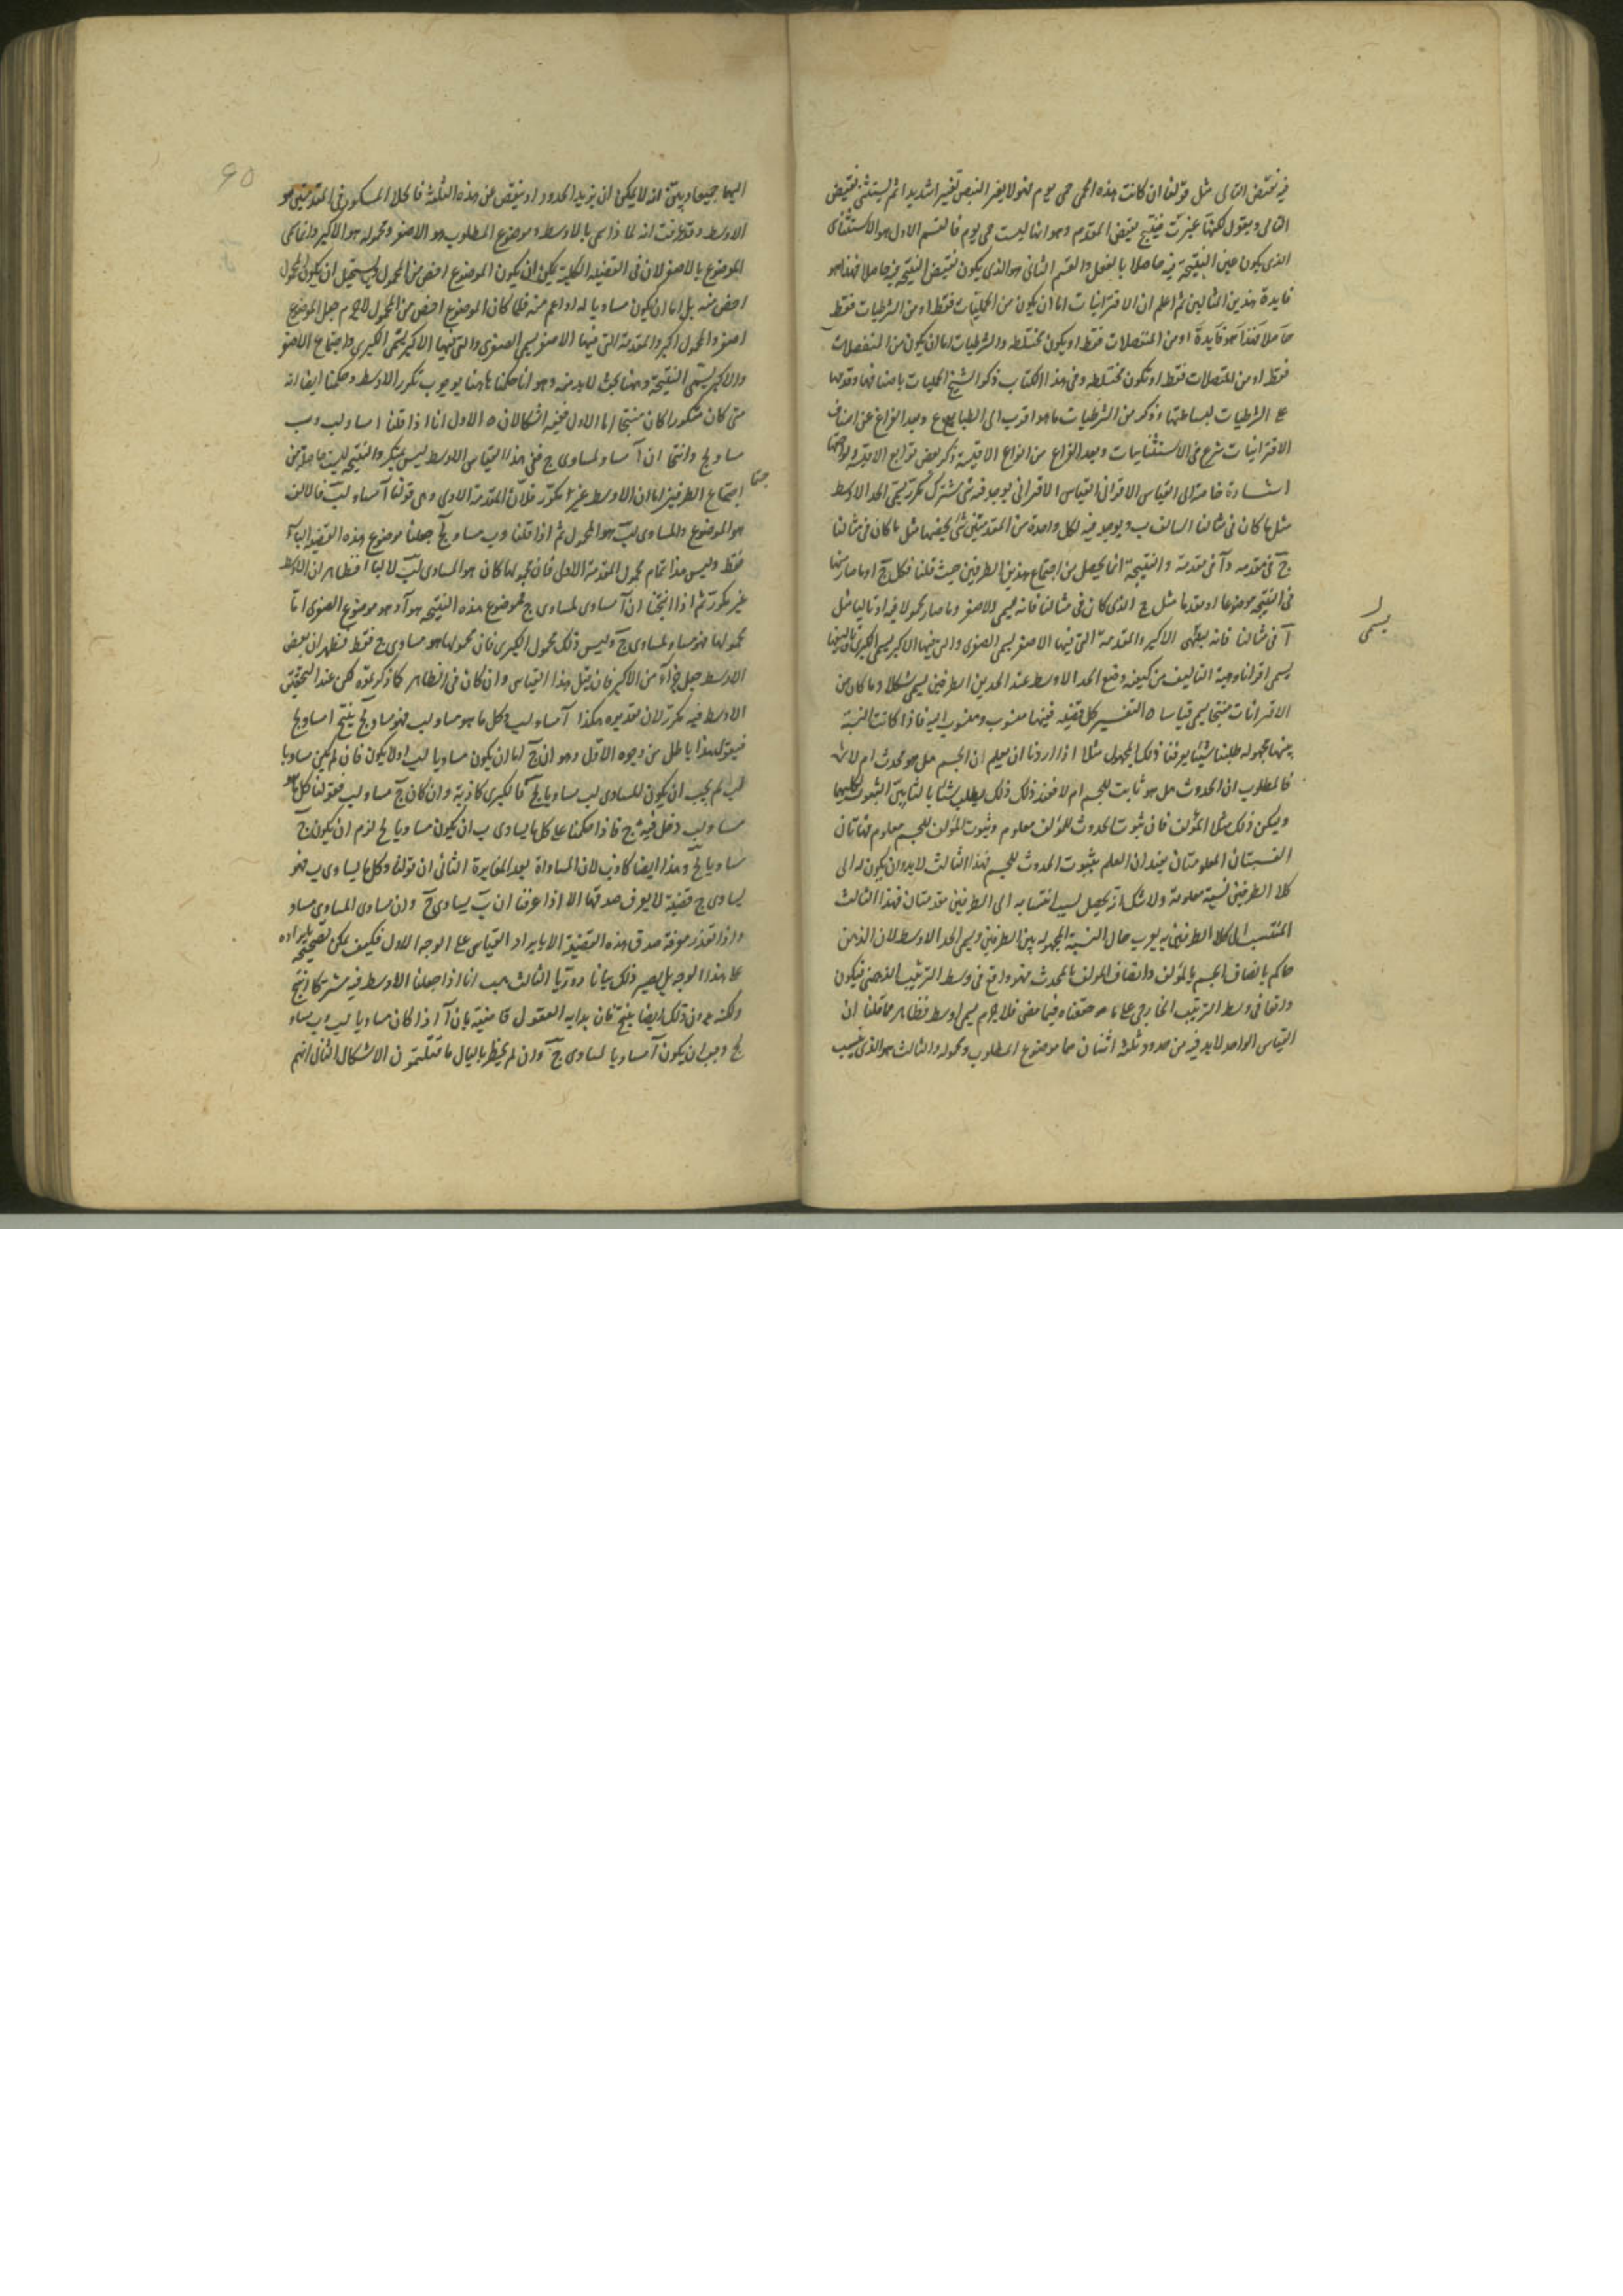 فيه نقيض التالى مثل قولنا ان كانت هذه الحمى حمى يوم فهو لا يغير النبض تغييرا شديدا ثم يستثنى نقيض
التالى ويقول لكنها غيرت فينتج نقيض المقدم وهو انها ليست حمى يوم فالقسم الاول هو الاستثنائى
الذى يكون عين النتيجة فيه حاصلا بالفعل والقسم الثانى هو الذى يكون نقيض النتيجة فيه حاصلا فهذا هو
فايدة هذين المثالين ثم اعلم ان الاقترانيات اما ان يكون من الحمليات فقط او من الشرطيات فقط
او من المتصلات فقط او يكون مختلطه والشرطيات اما ان يكون من المنفصلات
فقط او من المتصلات فقط او تكون مختلطه وفى هذا الكتاب ذكر الشيخ الحمليات باصنافها وقدمها
على الشرطيات لبساطتها وذكر من الشرطيات ما هو اقرب الى الطباع وبعد الفراغ عن اصناف
الاقترانيات شرع فى الاستثنائيات وبعد الفراغ من انواع الاقيسة ذكر بعض توابع الاقيسة ولواحقها
اشارة خاصة الى القياس الاقترانى القياس الاقترانى يوجد فيه شى مشترك مكرر يسمى الحد الاوسط
مثل ما كان فى مثالنا السالف ب ويوجد فيه لكل واحدة من المقدمتين شى يخصها مثل ما كان فى مثالنا
ج فى مقدمه وآ فى مقدمة والنتيجة انما يحصل من اجتماع هذين الطرفين حيث قلنا فكل ج ا وما صار منها
فى النتيجة موضوعا او مقدما مثل ج الذى كان فى مثالنا فانه يسمى الاصغر وما صار محمولا فيه او تاليا مثل
آ فى مثالنا فانه يسمى الاكبر والمقدمة التى فيها الاصغر يسمى الصغرى والتى فيها الاكبر يسمى الكبرى وتاليفهما
يسمى اقترانا وهية التاليف من كيفيه وقع الحد الاوسط عند الحدين الطرفين يسمى شكلا وما كان من
الاقترانات منتجا يسمى قياسا ه التفسير كل قضيه فيها منسوب ومنسوب اليه فاذا كانت النسبة
بينهما مجهوله طلبنا شيئا يعرفنا ذلك المجهول مثلا اذا اردنا ان نعلم ان الجسم هل هو محدث ام لا
فالمطلوب ان الحدوث هل هو ثابت للجسم ام لا فعند ذلك نطلب شيئا ثالثا بين الثبوت لكليهما
وليكن ذلك مثلا المؤلف فان ثبوت الحدوث للمؤلف معلوم وثبوت المؤلف للجسم معلوم فهاتان
النسبتان المعلومتان يفيدان العلم بثبوت الحدوث للجسم فهذا الثالث لابد وان يكون له الى
كلا الطرفين نسبة معلومة ولا شك انه يحصل بسبب انتسابه الى الطرفين مقدمتان فهذا الثالث
المنتسب الى كلا الطرفين به يعرف حال النسبة المجهوله بين الطرفين ويسمى الحد الاوسط لان الذهن
حاكم باتصاف الجسم بالمؤلف واتصاف المؤلف بالمحدث فهو واقع فى وسط الترتيب الذهنى فيكون
واقعا فى وسط الترتيب الخارجى على ما حققناه فيما مضى فلا جرم يسمى اوسط فظاهر مما قلنا ان
القياس الواحد لابد فيه من حدود ثلثة اثنان هما موضوع المطلوب ومحموله والثالث هو الذى ينسب
يسمى
90
اليهما جميعا وبين انه لا يمكن ان يزيد الحدود او ينقص من هذه الثلثة فالحد المكرر فى المقدمتين هو
الاوسط وقد عرفت انه لما ذا سمى بالاوسط وموضوع المطلوب هو الاصغر ومحموله هو الاكبر وانما سمى
الموضوع بالاصغر لان فى القضيه الكلية يمكن ان يكون الموضوع اخص من المحمول ويستحيل ان يكون المحمول
اخص منه بل اما ان يكون مساويا له او اعم منه فلما كان الموضوع اخص من المحمول لا جرم جعل الموضوع
اصغر والمحمول اكبر والمقدمة التى فيها الاصغر يسمى الصغرى والتى فيها الاكبر يسمى الكبرى واجتماع الاصغر
والاكبر يسمى النتيجة وههنا بحث لابد منه وهو انا حكمنا هاهنا بوجوب تكرر الاوسط وحكمنا ايضا انه
متى كان مكررا كان منتجا اما الاول ففيه اشكالان ه الاول انا اذا قلنا ا مساو لب وب
مساو لج وانتجا ان آ مساو لمساوى ج ففى هذا القياس الاوسط ليس بمتكرر والنتيجة ليست حاصلة من
اجتماع الطرفين اما ان الاوسط غير مكرر فلان المقدمة الاولى وهى قولنا آ مساو لب فالالف
هو الموضوع والمساوى لب هو المحمول ثم اذا قلنا وب مساو لج جعلنا موضوع هذه القضيه الباء
فقط وليس هذا تمام محمول المقدمة الاولى فان محمولها كان هو المساوى لب لا الباء فظاهر ان الاوسط
غير مكرر ثم اذا انتجنا ان آ مساوى لمساوى ج فموضوع هذه النتيجة هو آ وهو موضوع الصغرى اما
محمولها فهو مساو لمساوى ج وليس ذلك محمول الكبرى فان محمولها هو مساوى ج فقط فظهر ان بعض
الاوسط جعل جزءا من الاكبر فان قيل هذا القياس وان كان فى الظاهر كما ذكرتموه لكن عند التحقيق
الاوسط فيه مكرر لان تقديره هكذا آ مساو لب وكل ما هو مساو لب فهو مساو لج ينتج ا مساو لج
فنقول هذا باطل من وجوه الاول وهو ان ج اما ان يكون مساويا لب او لا يكون فان لم يكن مساويا
لب لم يجب ان يكون المساوى لب مساويا لج فالكبرى كاذبة وان كان ج مساو لب فقولنا كل ما هو
مساو لب دخل فيه ج فاذا حكمنا على كل ما يساوى ب ان يكون مساويا لج لزم ان يكون ج
مساويا لج وهذا ايضا كاذب لان المساواة بعد المغايرة الثانى ان قولنا وكل ما يساوى ب فهو
يساوى ج قضية لا يعرف صدقها الا اذا عرفنا ان ب يساوى ج وان مساوى المساوى مساو
واذا تعذر معرفة صدق هذه القضية الا بايراد القياس على الوجه الاول فكيف يمكن تصحيحه بايراده
على هذا الوجه بل يصير ذلك بيانا دوريا الثالث هب انا اذا جعلنا الاوسط فيه مشتركا انتج
ولكنه بدون ذلك ايضا ينتج فان بدايه العقول قاضية بان آ اذا كان مساويا لب وب مساو
لج وجب ان يكون آ مساويا لمساوى ج وان لم يخطر بالبال ما قلتموه ن الاشكال الثانى انهم